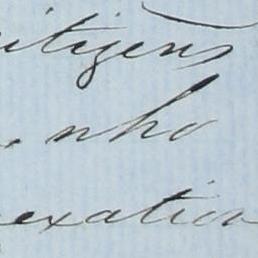 itizens
. who
exation